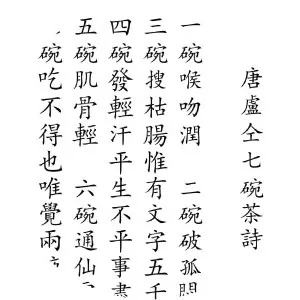 唐盧仝七碗茶詩
一碗喉吻潤 二碗破孤
三碗搜枯腸惟有文字五千
四碗發輕汗平生不平事
五碗肌骨輕 六碗通仙
碗吃不得也唯覺兩